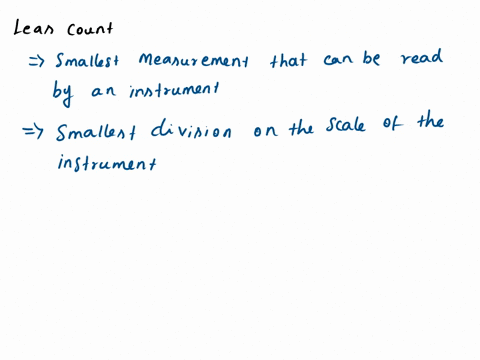 Leas count
=> Smallest measurement that can be read
by an instrument
=> Smallest division on the scale of the
instrument